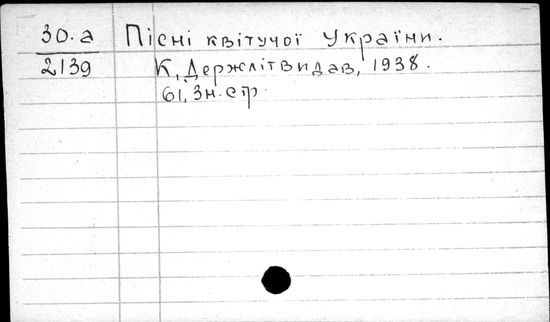 30.а Пісні квітучої України.
2139 К, Держлітвидав, 1938.
61, 3н. стр.